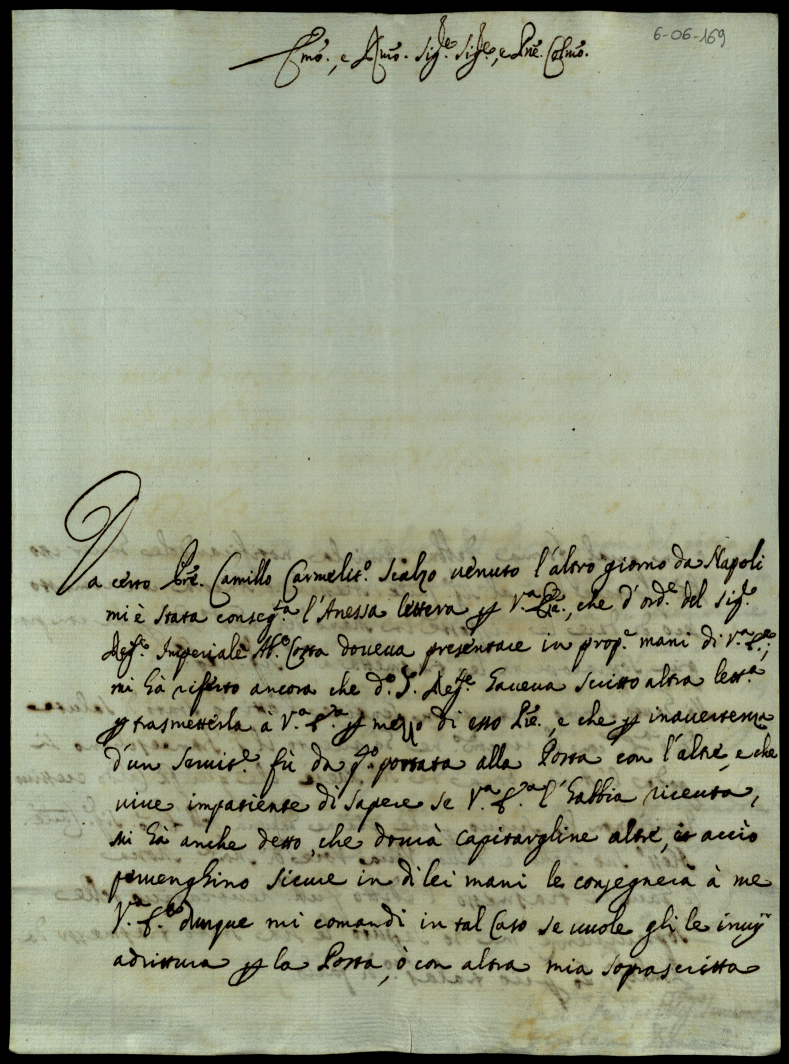 6-06-169
Emo., e Rmo. Sig.re Sig.re, e Pne. Colmo.
Da certo Pre. Camillo Carmelit.o Scalzo venuto l'altro giorno da Napoli
mi è stata conseg.ta l'Anessa lettera p V.a , che d'ord.e del Sig.e
Regg.e Imperiale Ab.e Costa doveva presentare in prop.e mani di V.a E.a;
mi hà riferto ancora che d.o S. Regg.e haveva scritto altra lett.a
p trasmetterla à V.a E.a p mezzo di esso Pre., e che p inavertenza
d'un Servit.e fù da q.o portata alla Posta con l'altre, e che
vive impatiente di sapere se V.a E.a l'habbia riceuta,
mi hà anche detto, che dovrà capitargline altre, et acciò
pervenghino sicure in di lei mani le consegnerà à me
V.a E.a dunque mi comandi in tal Caso se vuole gli le invij
adrittura p la Posta, ò con altra mia soprascritta